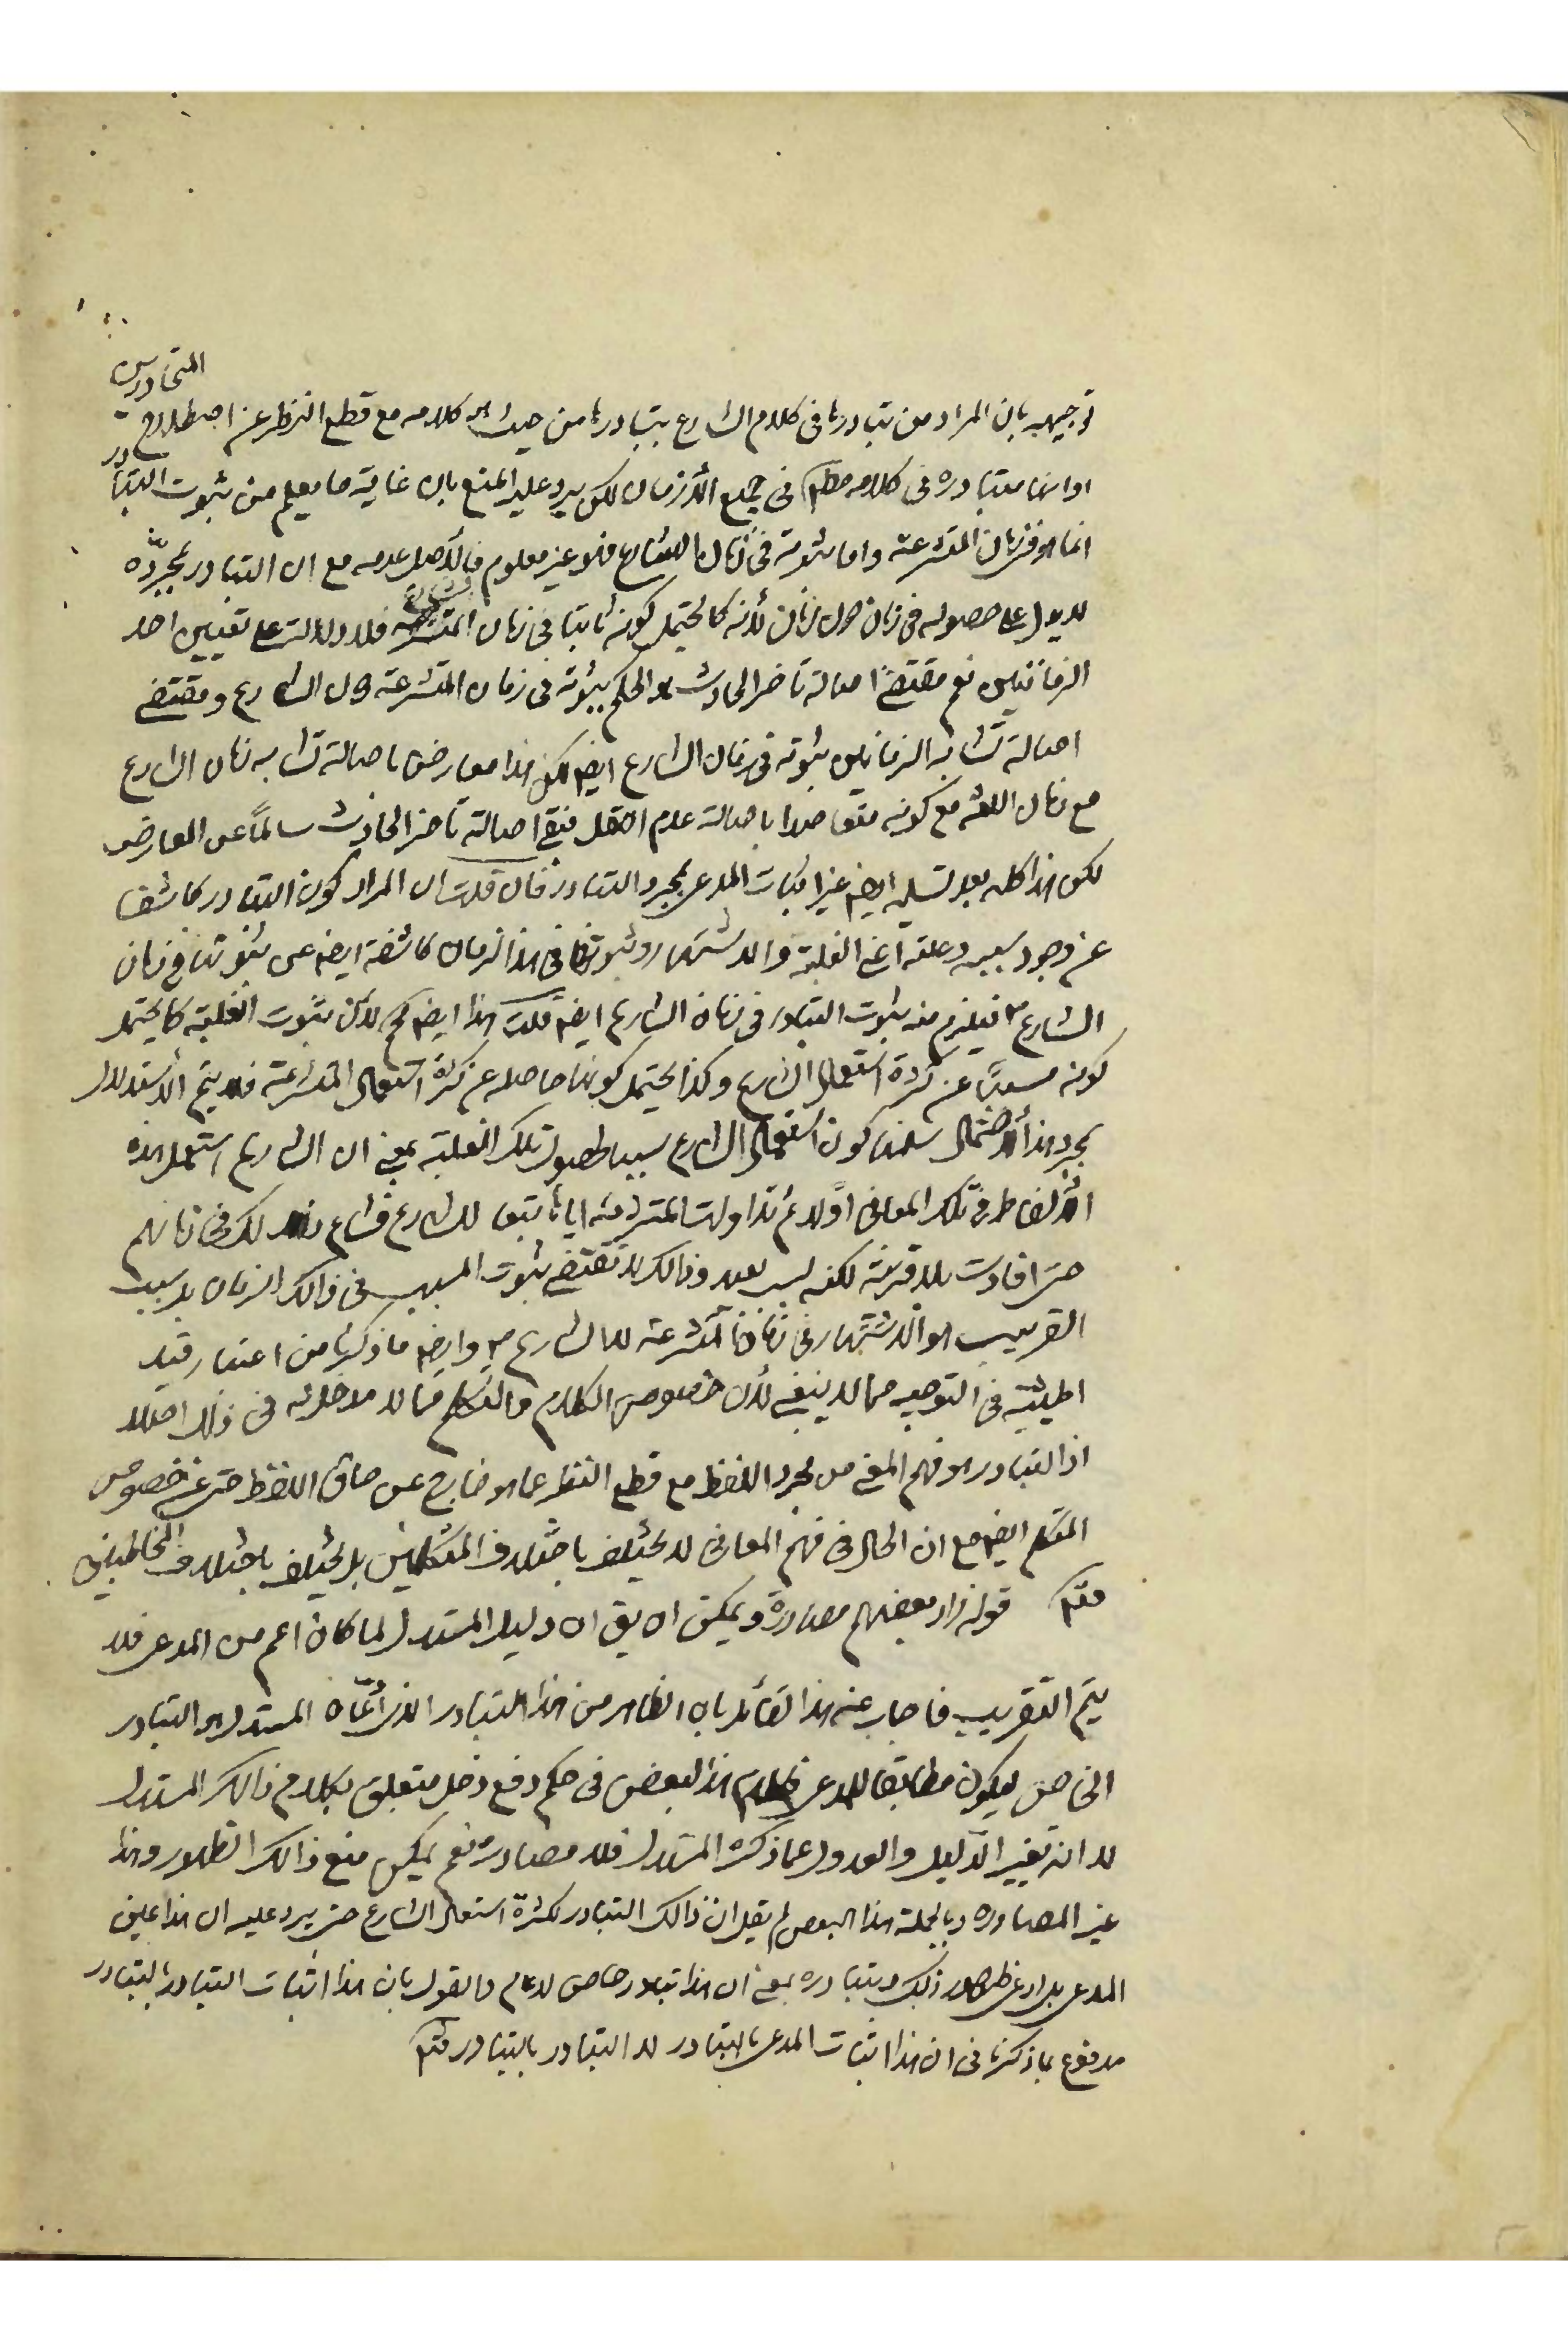 توجيهه بان المراد من تبادرها في كلام الشارع تبادرها من حيث هو كلامه مع قطع النظر عن اصطلاح المتحاورين
او انها متبادرة في كلامه مطم في جميع الأزمان لكن يرد عليه المنع بان غاية ما يعلم من ثبوت التبادر
انما هو في زمان المتشرعة واما ثبوته في زمان الشارع فهو غير معلوم فالأصل عدمه مع ان التبادر بمجرده
لا يدل على حصوله في زمان دون زمان لأنه كما يحتمل كونه ثابتا في زمان المتشرعة فلا دلالة على تعيين احد
الزمانين نعم مقتضى اصالة تأخر الحادث هو الحكم بثبوته في زمان المتشرعة دون الشارع ومقتضى
اصالة تشابه الزمانين ثبوته في زمان الشارع ايضم لكن هذا معارض باصالة تشابه زمان الشارع
مع زمان اللغة مع كونه متعاضدا باصالة عدم النقل فبقى اصالة تأخر الحادث سالماً عن المعارض
لكن هذا كله بعد تسليمه ايضم غير اثبات المدعى بمجرد التبادر فان قلت ان المراد كون التبادر كاشفا
عن وجود سببه وعلته اعني الغلبة والاشتهار وثبوتها في هذا الزمان كاشفة ايضم عن ثبوتها في زمان
الشارع فيلزم منه ثبوت التبادر في زمان الشارع ايضم قلت هذا ايضم لأن ثبوت الغلبة كما يحتمل
كونه مسبباً عن كثرة استعمال الشارع وكذا يحتمل كونها حاصله عن كثرة استعمال المتشرعة فلا يتم الاستدلال
بمجرد هذا الأحتمال سلمنا كون استعمال الشارع سببا لحصول تلك الغلبة بمعنى ان الشارع استعمل هذه
الألفاظ في تلك المعاني اوّلا ثم تداولت المتشرعة اياها تبعا للشارع فشاع ذلك في زمانهم
حتى افادت بلا قرينة لكنه سبب بعيد وذالك لا تقتضى ثبوت المسبب في ذالك الزمان بل سببه
القريب هو الاشتهار في زماننا المتشرعة لا الشارع وايضم ما ذكرنا من اعتبار قيد
الحيثية في التوجيه مما لا ينبغي لأن خصوص الكلام والمتكلم مما لا مدخل له في ذلك اصلا
اذ التبادر هو فهم المعنى من مجرد اللفظ مع قطع النظر عما هو خارج عن حاق اللفظ حتى عن خصوص
المتكلم ايضم مع ان الحال في فهم المعاني لا يختلف باختلاف المتكلمين بل يختلف باختلاف المخاطبين
فتم قوله زاد بعضهم مصادرة ويمكن ان يق ان دليل المستدل لما كان اعم من المدعى فلا
يتم التقريب فاجاب عنه هذا القائل بان الظاهر من هذا التبادر الذي ادّعاه المستدل هو التبادر
الخاص ليكون مطابقا للمدعى فكلام هذا البعض في حكم دفع دخل متعلق بكلام ذالك المستدل
لا انه تغيير الدليل والعدول عما ذكره المستدل فلا مصادرة نعم يمكن منع ذالك الظهور وهذا
غير المصادره وبالجملة هذا البعض لم يقل ان ذالك التبادر لكثرة استعمال الشارع حتى يرد عليه ان هذا عين
المدعى بل ادعى ظهور ذلك وتبادره بمعنى ان هذا تبادر خاص لا عام والقول بان هذا اثبات التبادر بالتبادر
مدفوع بما ذكرنا في ان هذا اثبات المدعى بالتبادر لا التبادر بالتبادر فتم